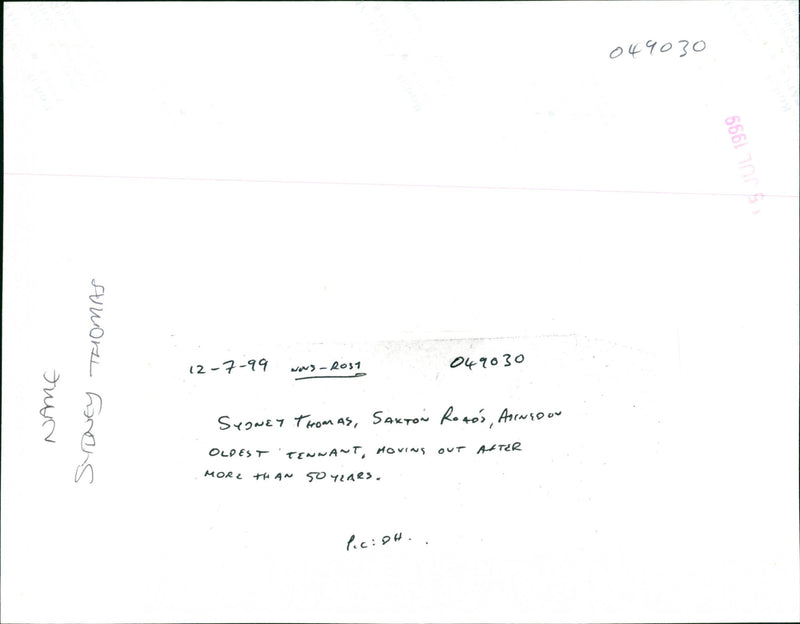 049030
15 JUL 1999
NAME
SYDNEY THOMAS
12-7-99 NNS-ROST 049030
SYDNEY THOMAS, SAXTON ROAD'S, ABINGDON
OLDEST TENNANT, MOVING OUT AFTER
MORE THAN 50 YEARS.
P.C: DH.